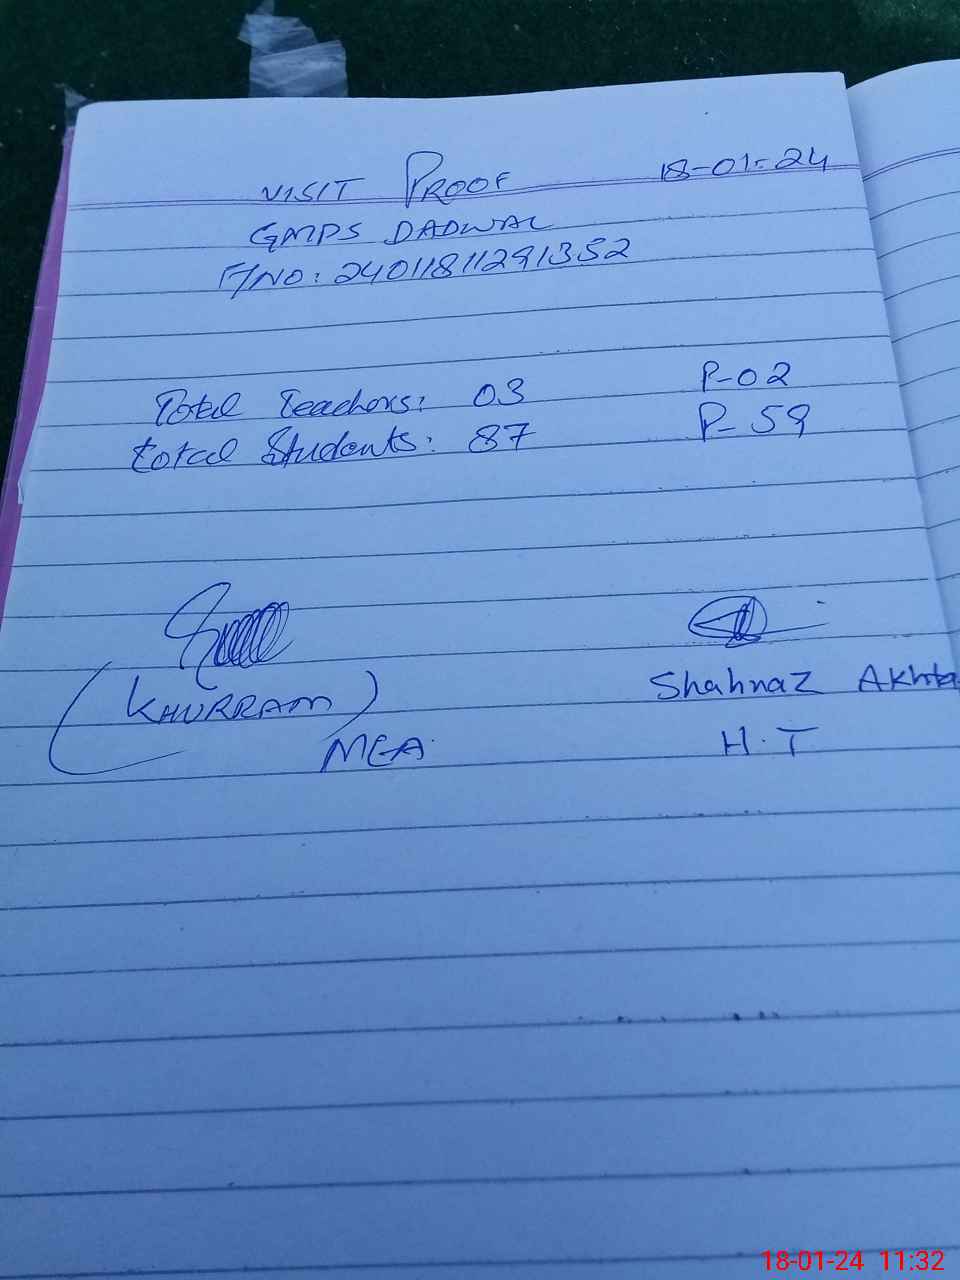 VISIT PROOF 18-01-24
GMPS DADWAL
F/NO: 24011811291352
Total Teachers: 03 P-02
total Students: 87 P-59
(KHURRAM) Shahnaz Akhta
MEA. H.T
18-01-24 11:32